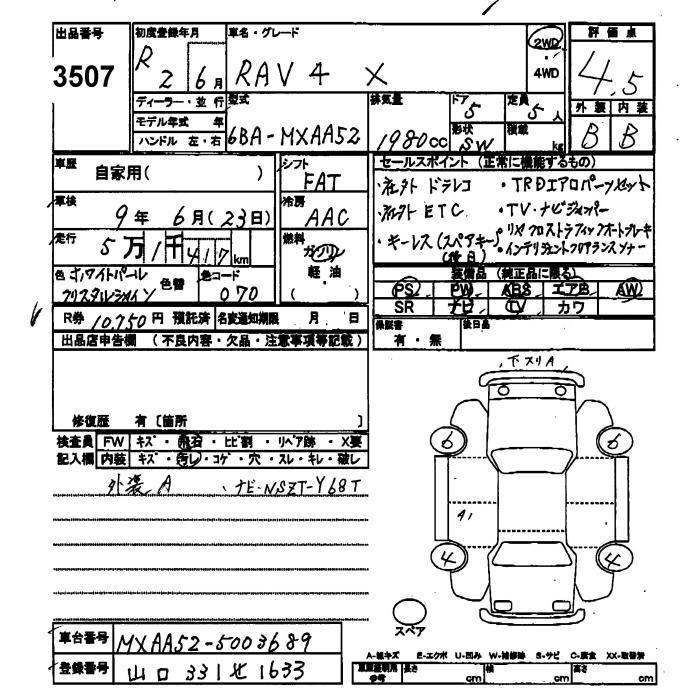 出品番号
3507
初度登録年月
R 2 6月
車名・グレード
RAV4 X
2WD
・
4WD
評価点
4.5
外装 内装
B B
ディーラー・並行
モデル年式 年
ハンドル 左・右
型式
6BA-MXAA52
排気量
1980cc
ドア
5
形状
SW
定員
5人
積載
kg
車歴
自家用( )
車検
9年 6月(23日)
走行
5万1千417km
色 ホワイトパール
クリスタルシャイン
色替
色コード
070
シフト
FAT
冷房
AAC
燃料
ガソリン
軽・油
( )
セールスポイント (正常に機能するもの)
・社外ドラレコ
・社外ETC
・キーレス(スペアキー)
(後日)
・TRDエアロパーツセット
・TV・ナビジャンパー
・リヤクロストラフィックオートブレーキ
・インテリジェントクリアランスソナー
装備品(純正品に限る)
PS PW ABS エアB AW
SR ナビ TV カワ
R券 10,750円 預託済
名変通知期限 月 日
保証書
有・無
後日品
出品店申告欄 (不良内容・欠品・注意事項等記載)
修復歴 有〔箇所 〕
検査員 FW キズ・飛石・ヒビ割・リペア跡・X要
記入欄 内装 キズ・汚し・コゲ・穴・スレ・キレ・破レ
外装A 、ナビ-NSZT-Y68T
下スリA
6 6
A1
4 4
スペア
車台番号 MXAA52-5003689
登録番号 山口 331 せ 1633
A-線キズ E-エクボ U-凹み W-補修跡 S-サビ C-腐食 XX-取替済
車庫証明用
参考
長さ cm 幅 cm 高さ cm